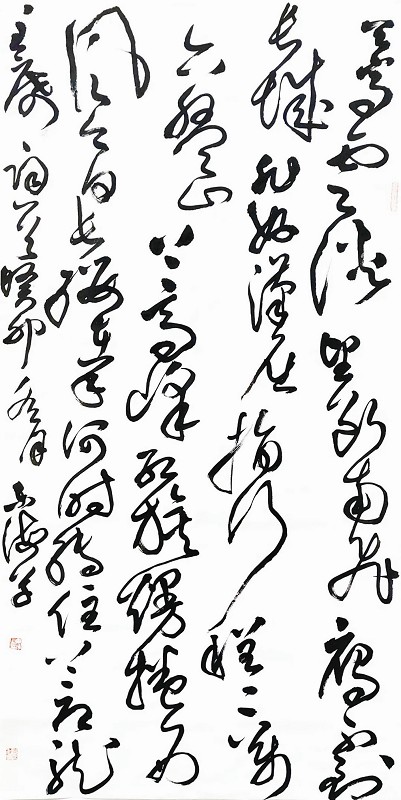 天高云淡望断南飛雁不到
长城非好漢屈指行程二萬
六盤山上高峰红旗漫捲西
风今日长缨在手何时缚住苍龙
主席词一首癸卯冬月